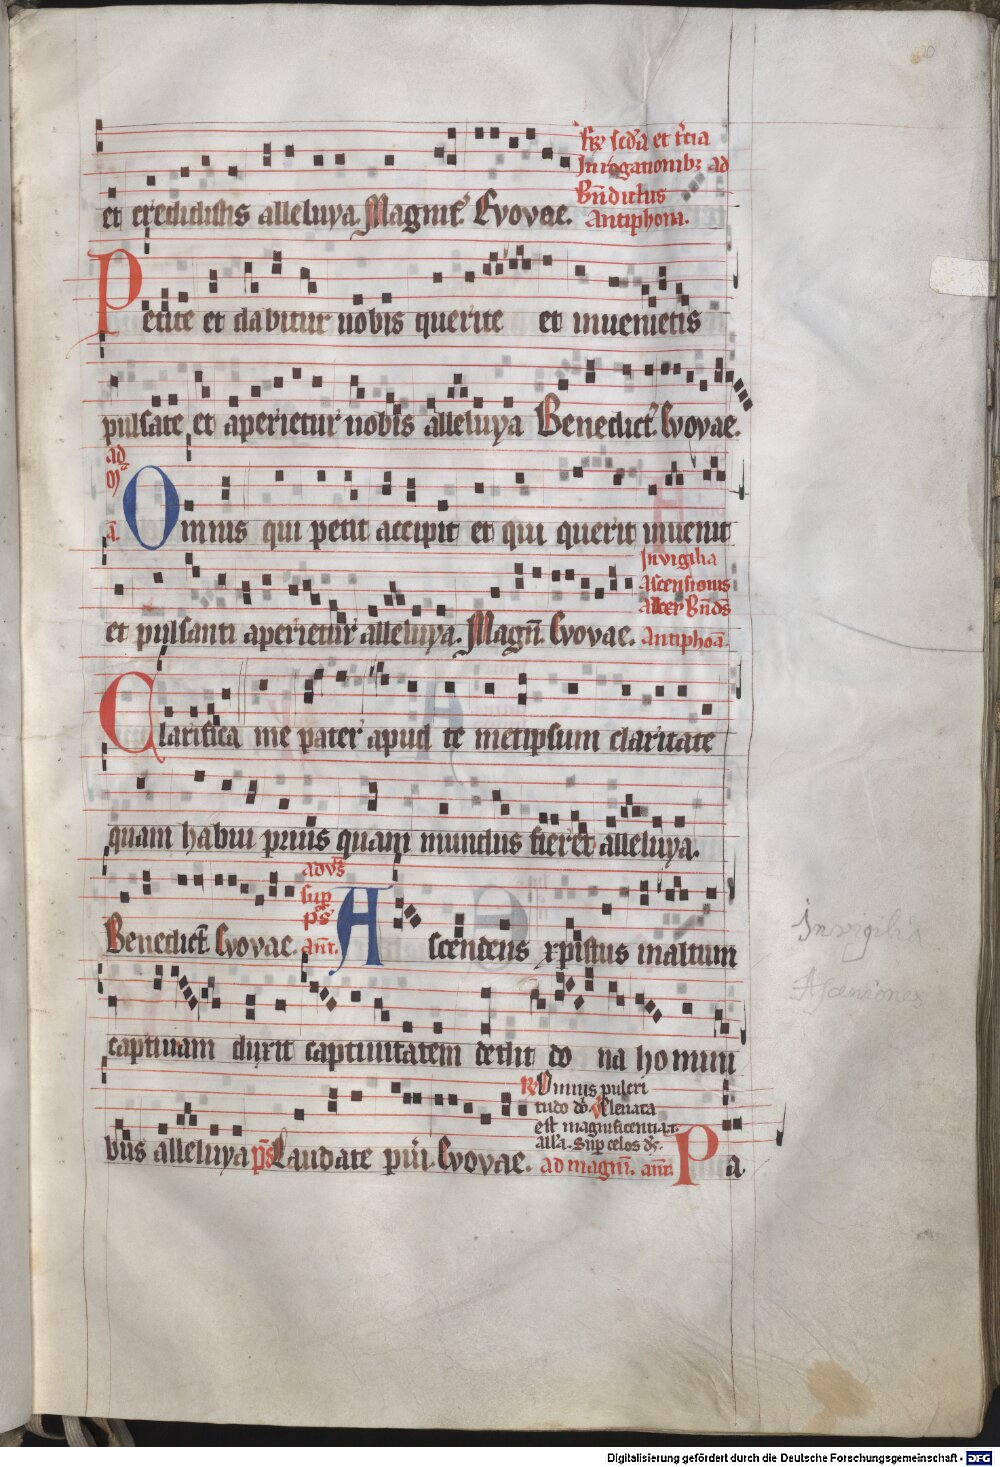 et credidistis alleluya. Magnit̄ Evovae.
Fer̄ scd̄a et t̄cia
In rogationibꝫ ad
Bn̄dictus
Antiphona.
Petite et dabitur nobis querite et invenietis
pulsate et aperietur nobis alleluya Benedict̄. Evovae.
ad
a.
Omnis qui petit accipit et qui querit invenit
et pulsanti aperietur alleluya. Magn̄. Evovae.
In vigilia
Ascensionis
Alter Bn̄ds
Antiphoā.
Clarifica me pater apud te metipsum claritate
quam habui prius quam mundus fieret alleluya.
Benedict̄. Evovae.
ad vs̄
sup̄
ps̄
an̄t.
Ascendens xpistus in altum
In vigilia
Ascensiones
captivam duxit captivitatem dedit do na homini
bus alleluya ps̄ Laudate pūi. Evovae.
R̄ Omnis pulcri
tudo dō v̄ Elevata
est magnificentia t.
all̄a. Sup celos ds̄.
ad magn̄. an̄t. Pa
Digitalisierung gefördert durch die Deutsche Forschungsgemeinschaft - DFG